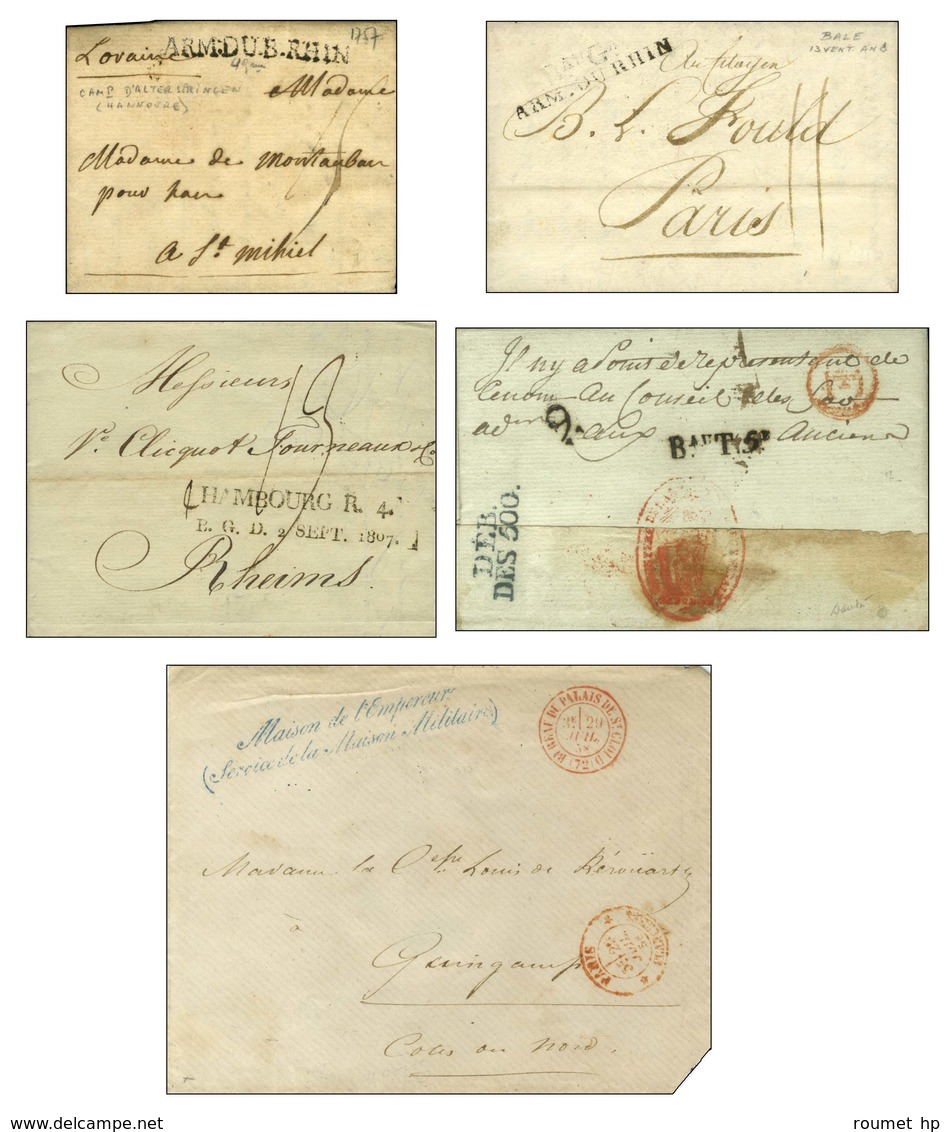 1757
ARM.DU.B.RHIN
Lorraine
CAMP D'ALTERSBRINGEN
(HANNOVRE)
Madame
Madame de Montauban
pour
a St. mihiel
BALE
13 VENT AN 8
Bau G.
ARM. DU RHIN
Au Citoyen
B. L. Fould
Paris
Messieurs
Ve. Clicquot Fourneaux & Co
HAMBOURG R. 4.
B. G. D. 2 SEPT. 1807.
Rheims
Il n'y a Point de représentant de
ce nom au Conseil des
aux Anciens
Bau T. 5e
DEB.
DES 500.
Maison de l'Empereur
(Service de la Maison Militaire)
BUREAU DU PALAIS DE ST CLOUD
3E 29
JUIL.
58
(72)
Madame la Ctesse Louis de
à
Guingamp
PARIS
Côtes du Nord.
roumet hp